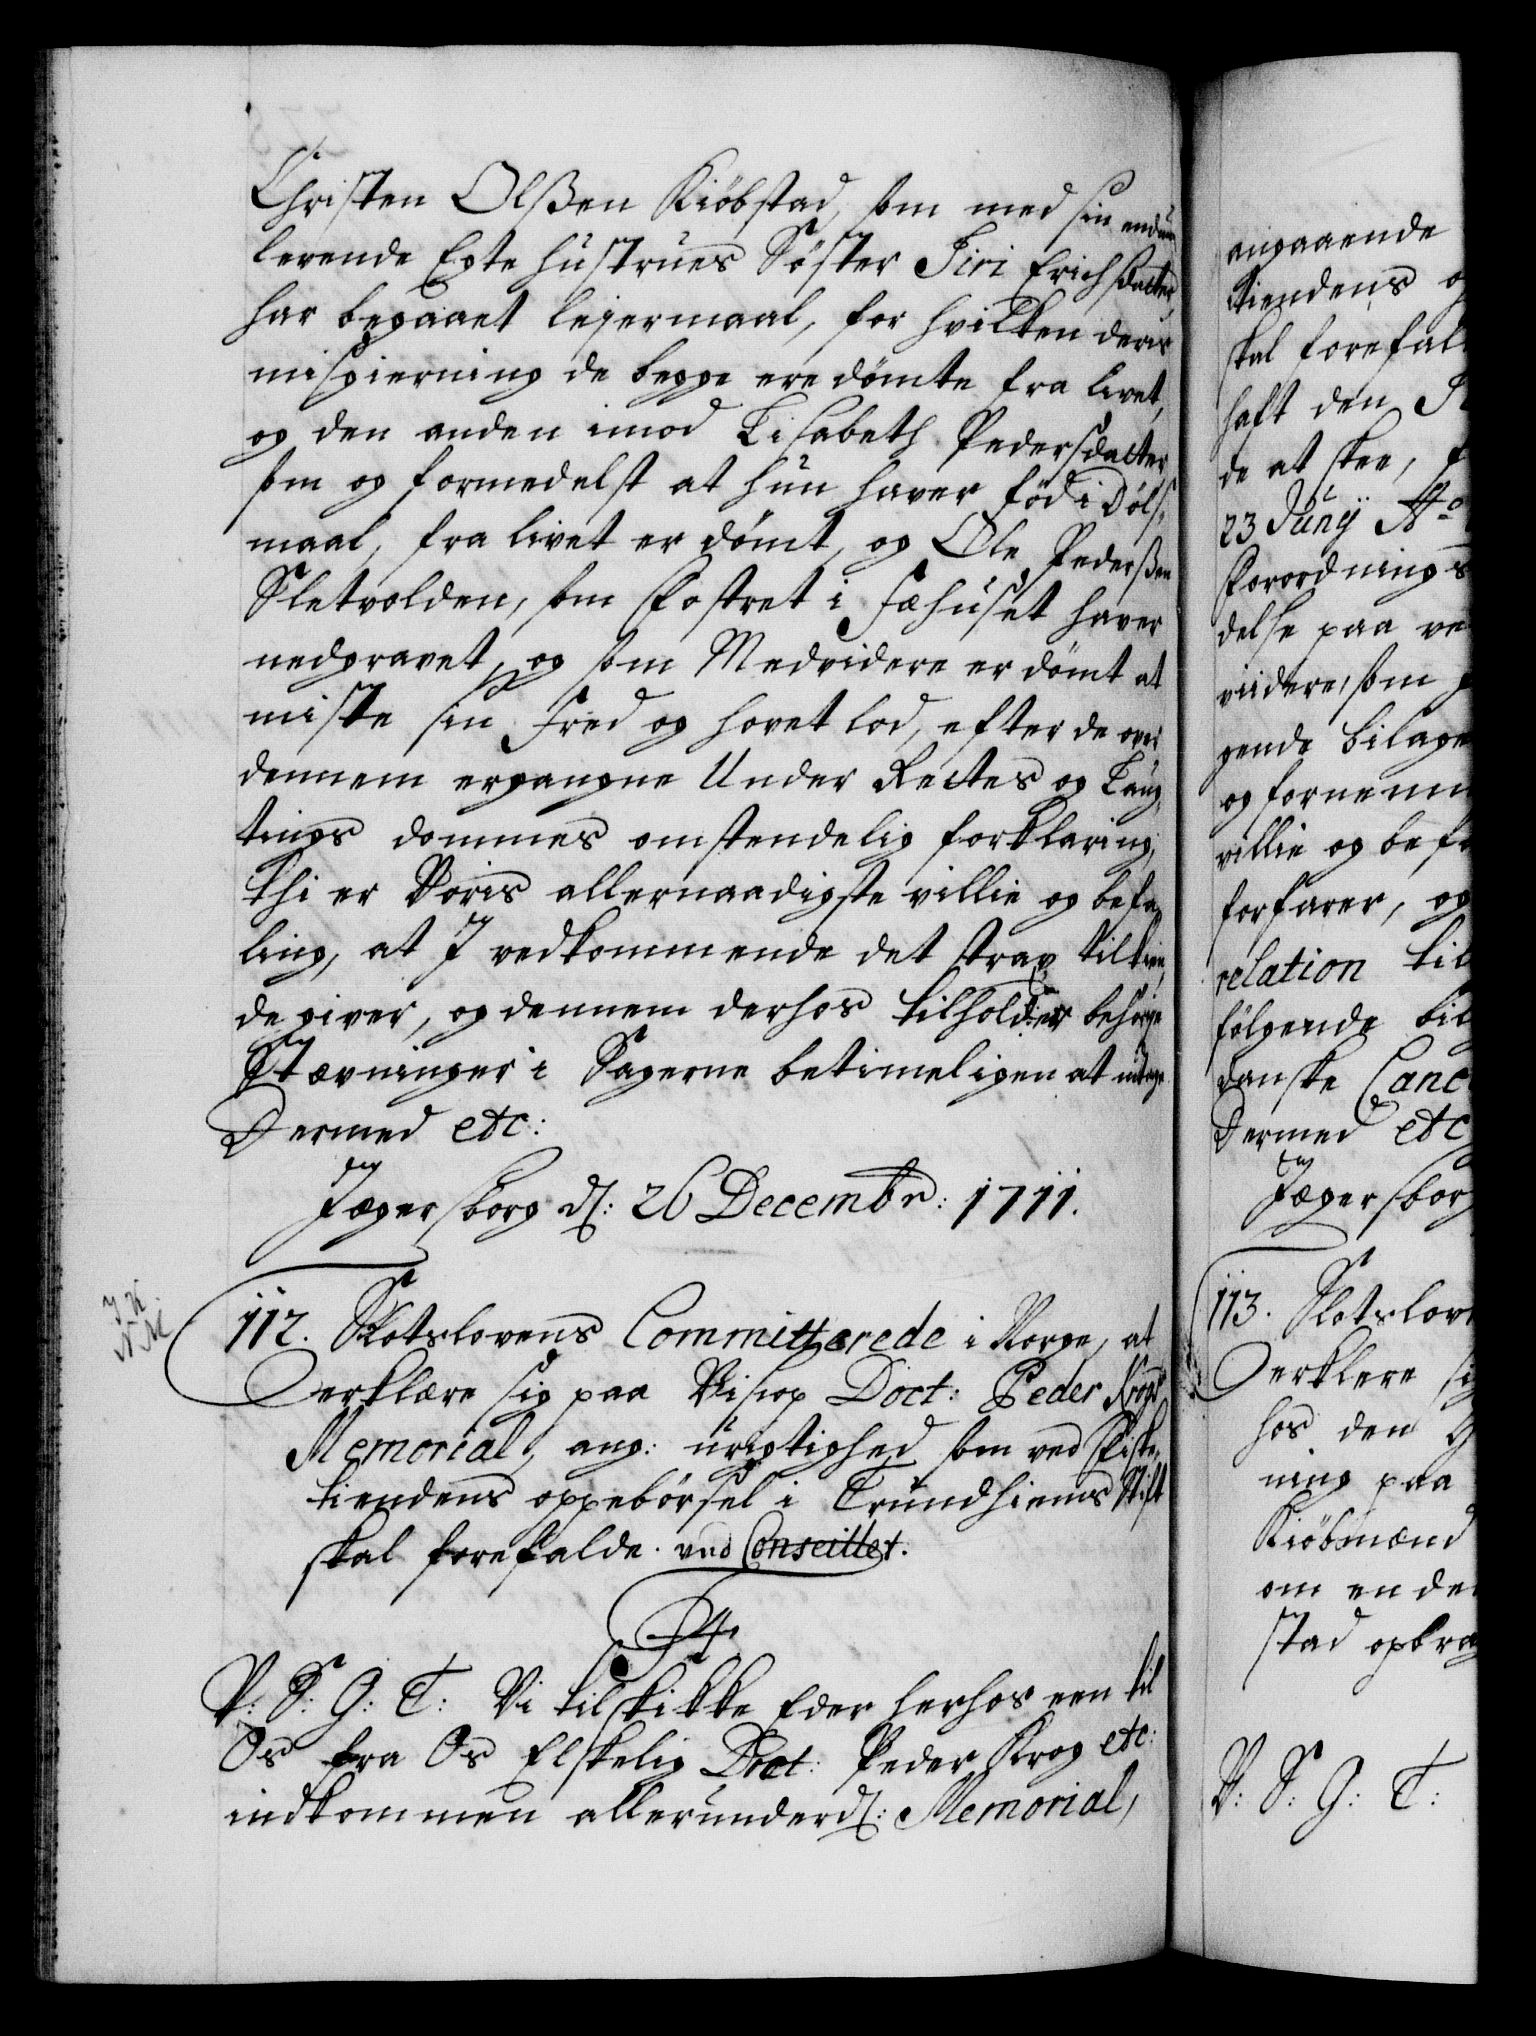 Christen Olßen Kiöbstad, som med sin endnu
levende Egte hustrues Söster Siri Erichsdatter,
har begaaet lejermaal, for hvilken deris
misgierning de begge ere dömte fra livet,
og den anden imod Lisabeth Pedersdatter,
som og formedelst at hun haver föd i Döls,
maal, fra livet er dömt, og Ole Pederßen
Sletvolden, som Fostret i Fæhuset haver
nedgravet, og som Medvidere er dömt at
miste sin Fred og hovet lod, efter de over
dennem ergangne Under Rettes og Laug,
tings dommes omstendelig forklaring,
thi er Voris allernaadigste villie og befa,
ling, at I vedkommende det strax tilkien,
de giver, og dennem derhos tilholder behörige
Stævninger i Sagerne betimeligen at udtage
Dermed etc:
Jægersborg d: 26 Decembr: 1711.
112. Slotslovens Committerede i Norge, at
erklære sig paa Bishop Doct: Peder Krogs
Memorial, ang: urigtighed som ved Fiske,
tiendens oppebörsel i Trundhiems Stift
skal forefalde. ved Conseillet.
F4.
V: S: G: T: Vi tilskikke Eder herhos een til
Os fra Os Elskelig Doct: Peder Krog etc:
indkommen allerunderd: Memorial,
angaaende
tiendens
skal forefal
haft den
de at skee,
23 Junij Ao
Forordnings
delse paa ve
viidere, som
gende bilage
og fornemm
villie og befa
forfarer, og
relation til
fölgende bil
danske Canc
Dermed etc
Jægersborg
113. Slotslov
erklere sig
hos den
ning paa
Kiöbmænd
om en de
stad opbra
V: S: G: T: